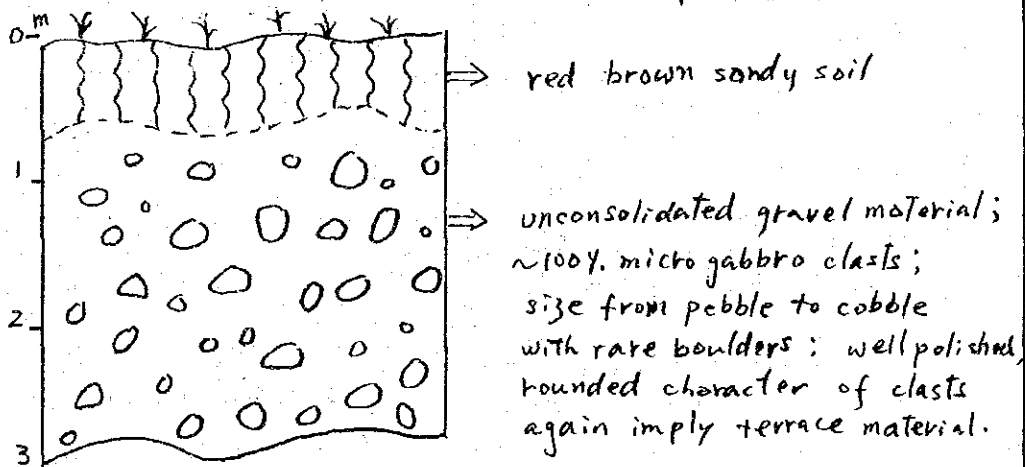 m
0
red brown sandy soil
1
unconsolidated gravel material;
~100%. micro gabbro clasts;
size from pebble to cobble
2
with rare boulders; well polished,
rounded character of clasts
again imply terrace material.
3